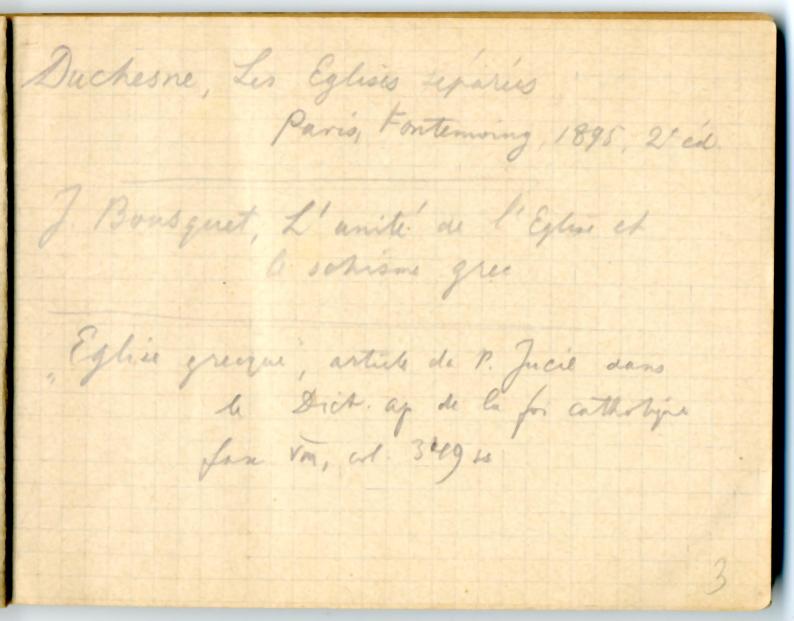 Duchesne, Les Eglises séparées
Paris, Fontemoing, 1895, 2e éd.
J. Bousquet, L'unité de l'Eglise et
le schisme grec
„Eglise grecque", article de P. dans
le Dict. ap de la foi catholique
fasc VIII, col. 349 ss
3